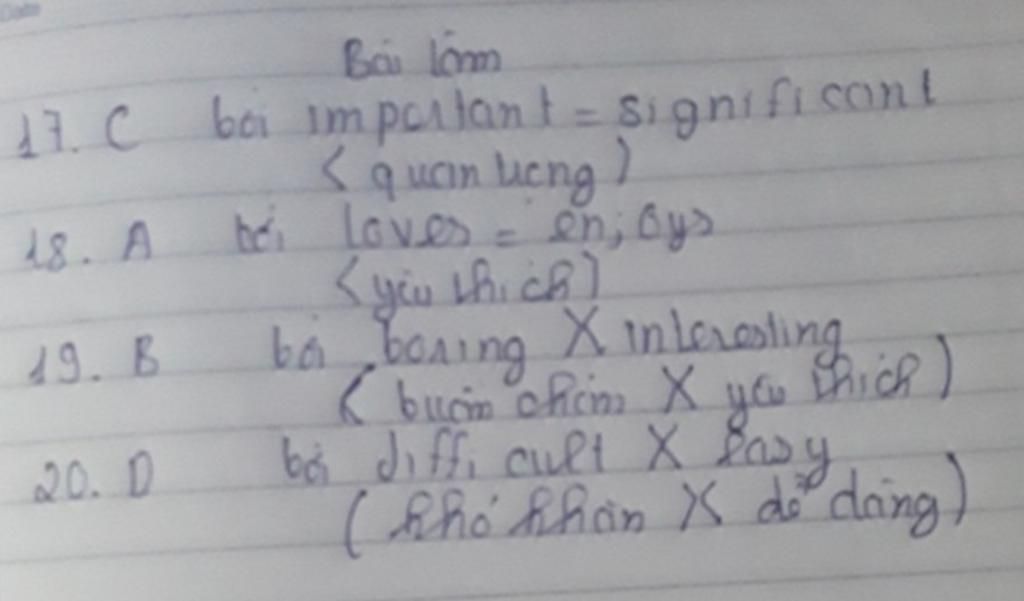 Bài làm
17. C bởi important = significant
(quan trọng)
18. A bởi loves = enjoys
(yêu thích)
19. B bởi boring X interesting
(buồn chán X yêu thích)
20. D bởi difficult X Easy
(khó khăn X dễ dàng)